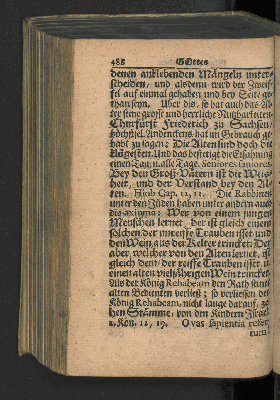 488 GOttes
denen anklebenden Mängeln unter-
scheiden, und alsdenn wird der Zweif-
fel auf einmal gehaben und bey Seite ge-
than seyn. Uber diß, so hat auch das Al-
ter seine grosse und herrliche Nutzbarkeiten.
Churfürst Friederich zu Sachsen,
hochsel. Andenckens, hat im Gebrauch ge-
habt zu sagen: Die Alten sind doch die
Klügesten. Und das bestetigt die Erfahrung
einen Tag in alle Tage. Seniores saniores.
Bey den Groß-Vätern ist die Weis-
heit, und der Verstand bey den Al-
ten. Hiob Cap. 12, 12. Die Rabbinen
unter den Jüden haben unter andern auch
dis axioma: Wer von einem jungen
Menschen lernet, der ist gleich einem
solchen der unreiffe Trauben isset und
den Wein aus der Kelter trincket: Der
aber welcher von den Alten lernet, ist
gleich dem, der reiffe Trauben isset, und
einen alten vieljährigen Wein trincket.
Als der König Rehabeam den Rath seiner
alten Bedienten verließ; so verliessen den
König Rehabeam, nicht lange darauf, ze-
hen Stämme, von den Kindern Israel
1. Kön. 12, 19. Ovus sapientia refert